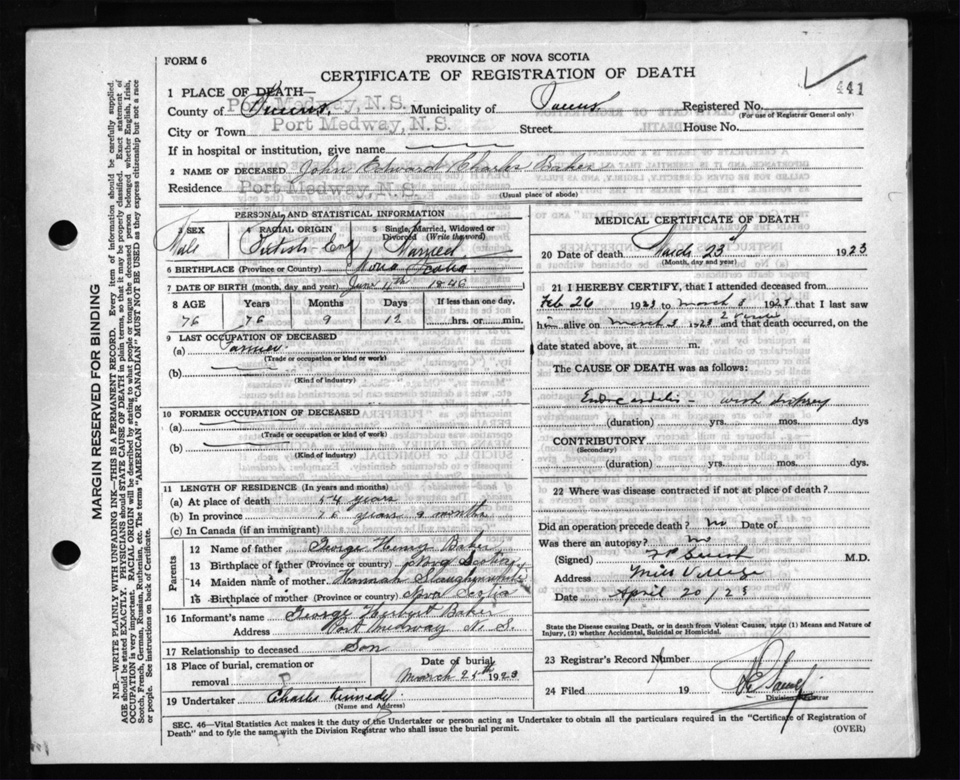 FORM 6
PROVINCE OF NOVA SCOTIA
CERTIFICATE OF REGISTRATION OF DEATH
441
1 PLACE OF DEATH—
County of Queens Port Medway, N.S. Municipality of Queens Registered No.
(For use of Registrar General only)
City or Town Port Medway, N.S. Street House No.
If in hospital or institution, give name
2 NAME OF DECEASED John Edward Charles Baker
Residence Port Medway, N.S. (Usual place of abode)
PERSONAL AND STATISTICAL INFORMATION
3 SEX 4 RACIAL ORIGIN 5 Single, Married, Widowed or Divorced (Write the word)
Male Married
6 BIRTHPLACE (Province or Country) Nova Scotia
7 DATE OF BIRTH (month, day, and year) June 1846
8 AGE Years Months Days If less than one day,
76 76 9 12 hrs. or min.
9 LAST OCCUPATION OF DECEASED
(a) Farmer
(Trade or occupation or kind or work)
(b)
(Kind of industry)
10 FORMER OCCUPATION OF DECEASED
(a)
(Trade or occupation or kind of work)
(b)
(Kind of industry)
11 LENGTH OF RESIDENCE (In years and months)
(a) At place of death 54 years
(b) In province 76 years 9 months
(c) In Canada (if an immigrant)
Parents
12 Name of father George Henry Baker
13 Birthplace of father (Province or country) Nova Scotia
14 Maiden name of mother Hannah
15 Birthplace of mother (Province or country) Nova Scotia
16 Informant's name George Herbert Baker
Address Port Medway N. S.
17 Relationship to deceased Son
18 Place of burial, cremation or removal Date of burial
March 25th 1923
19 Undertaker Charles Kennedy
(Name and Address)
MEDICAL CERTIFICATE OF DEATH
20 Date of death March 23 1923
(Month, day and year)
21 I HEREBY CERTIFY, that I attended deceased from
Feb 26 1923 to March 8 1923 that I last saw
him alive on March 1923 and that death occurred, on the
date stated above, at m.
The CAUSE OF DEATH was as follows:
Endocarditis — with dropsy
(duration) yrs. mos. dys
CONTRIBUTORY
(Secondary)
(duration) yrs. mos. dys.
22 Where was disease contracted if not at place of death?
Did an operation precede death? No Date of
Was there an autopsy? No
(Signed) M.D.
Address Mill Village
Date April 20/23
State the Disease causing Death, or in death from Violent Causes, state (1) Means and Nature of
Injury, (2) whether Accidental, Suicidal or Homicidal.
23 Registrar's Record Number
24 Filed 19
Division Registrar
SEC. 46—Vital Statistics Act makes it the duty of the Undertaker or person acting as Undertaker to obtain all the particulars required in the "Certificate of Registration of
Death" and to fyle the same with the Division Registrar who shall issue the burial permit. (OVER)
MARGIN RESERVED FOR BINDING
N.B.—WRITE PLAINLY WITH UNFADING INK—THIS IS A PERMANENT RECORD. Every item of information should be carefully supplied.
AGE should be stated EXACTLY. PHYSICIANS should STATE CAUSE OF DEATH in plain terms, so that it may be properly classified. Exact statement of
OCCUPATION is very important. RACIAL ORIGIN will be described by stating to what people or tongue the deceased person belonged whether English, Irish,
Scotch, French, German, Russian, Ruthenian, etc. The terms "AMERICAN" OR "CANADIAN" MUST NOT BE USED as they express citizenship but not a race
or people. See instructions on back of Certificate.